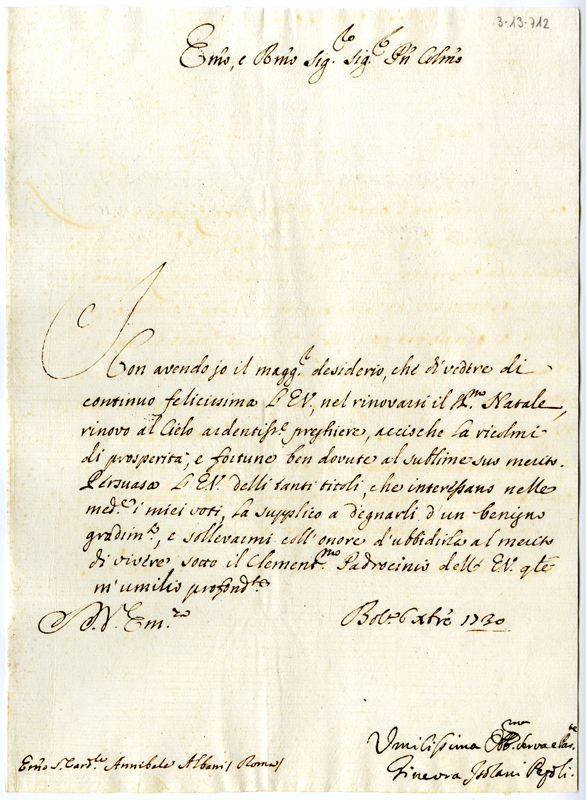 3-13-712
Em̃o, e Rm̃o Sig.re Sig.re Pñ Colm̃o
Non avendo jo il magg.r desiderio, che di vedere di
continuo felicissima l'E.V., nel rinovarsi il SS.mo Natale,
rinovo al Cielo ardentiss.e preghiere, accioche la ricolmi
di prosperità, e fortune ben dovute al sublime suo merito.
Persuasa l'E.V. delli tanti titoli, che interessano nelle
med.e i miei voti, la supplico a degnarli d'un benigno
gradim.to, e sollevarmi coll'onore d'ubbidirla al merito
di vivere sotto il Clement.mo Padrocinio dell'E.V. q̃le
m'umilio profond.te
D. V. Em.za
Bol.a 6 Xbrẽ 1730
Umilissima Obb.ma serva e
Ginevra Isolani Pepoli
Em̃o S.r Card.le Annibale Albani / Roma /